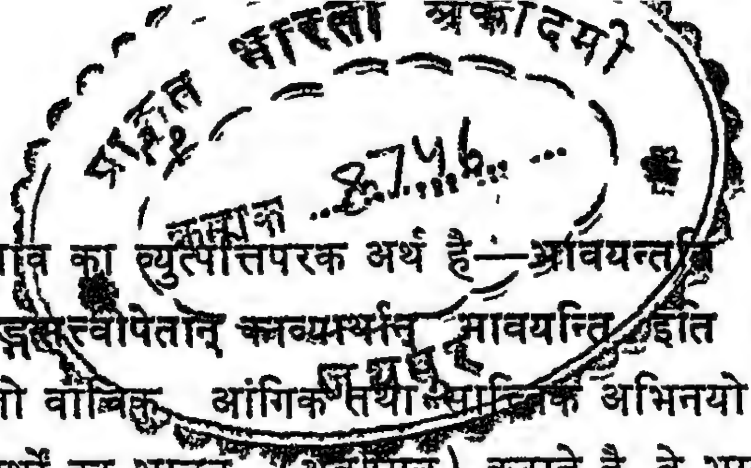 प्राकृत भारती अकादमी
क्रमांक 8746
जयपुर
भाव का व्युत्पत्तिपरक अर्थ है—भावयन्तीति
सत्त्वोपेतान् काव्यार्थान् भावयन्ति इति
वाचिक आंगिक तथा सात्त्विक अभिनयो